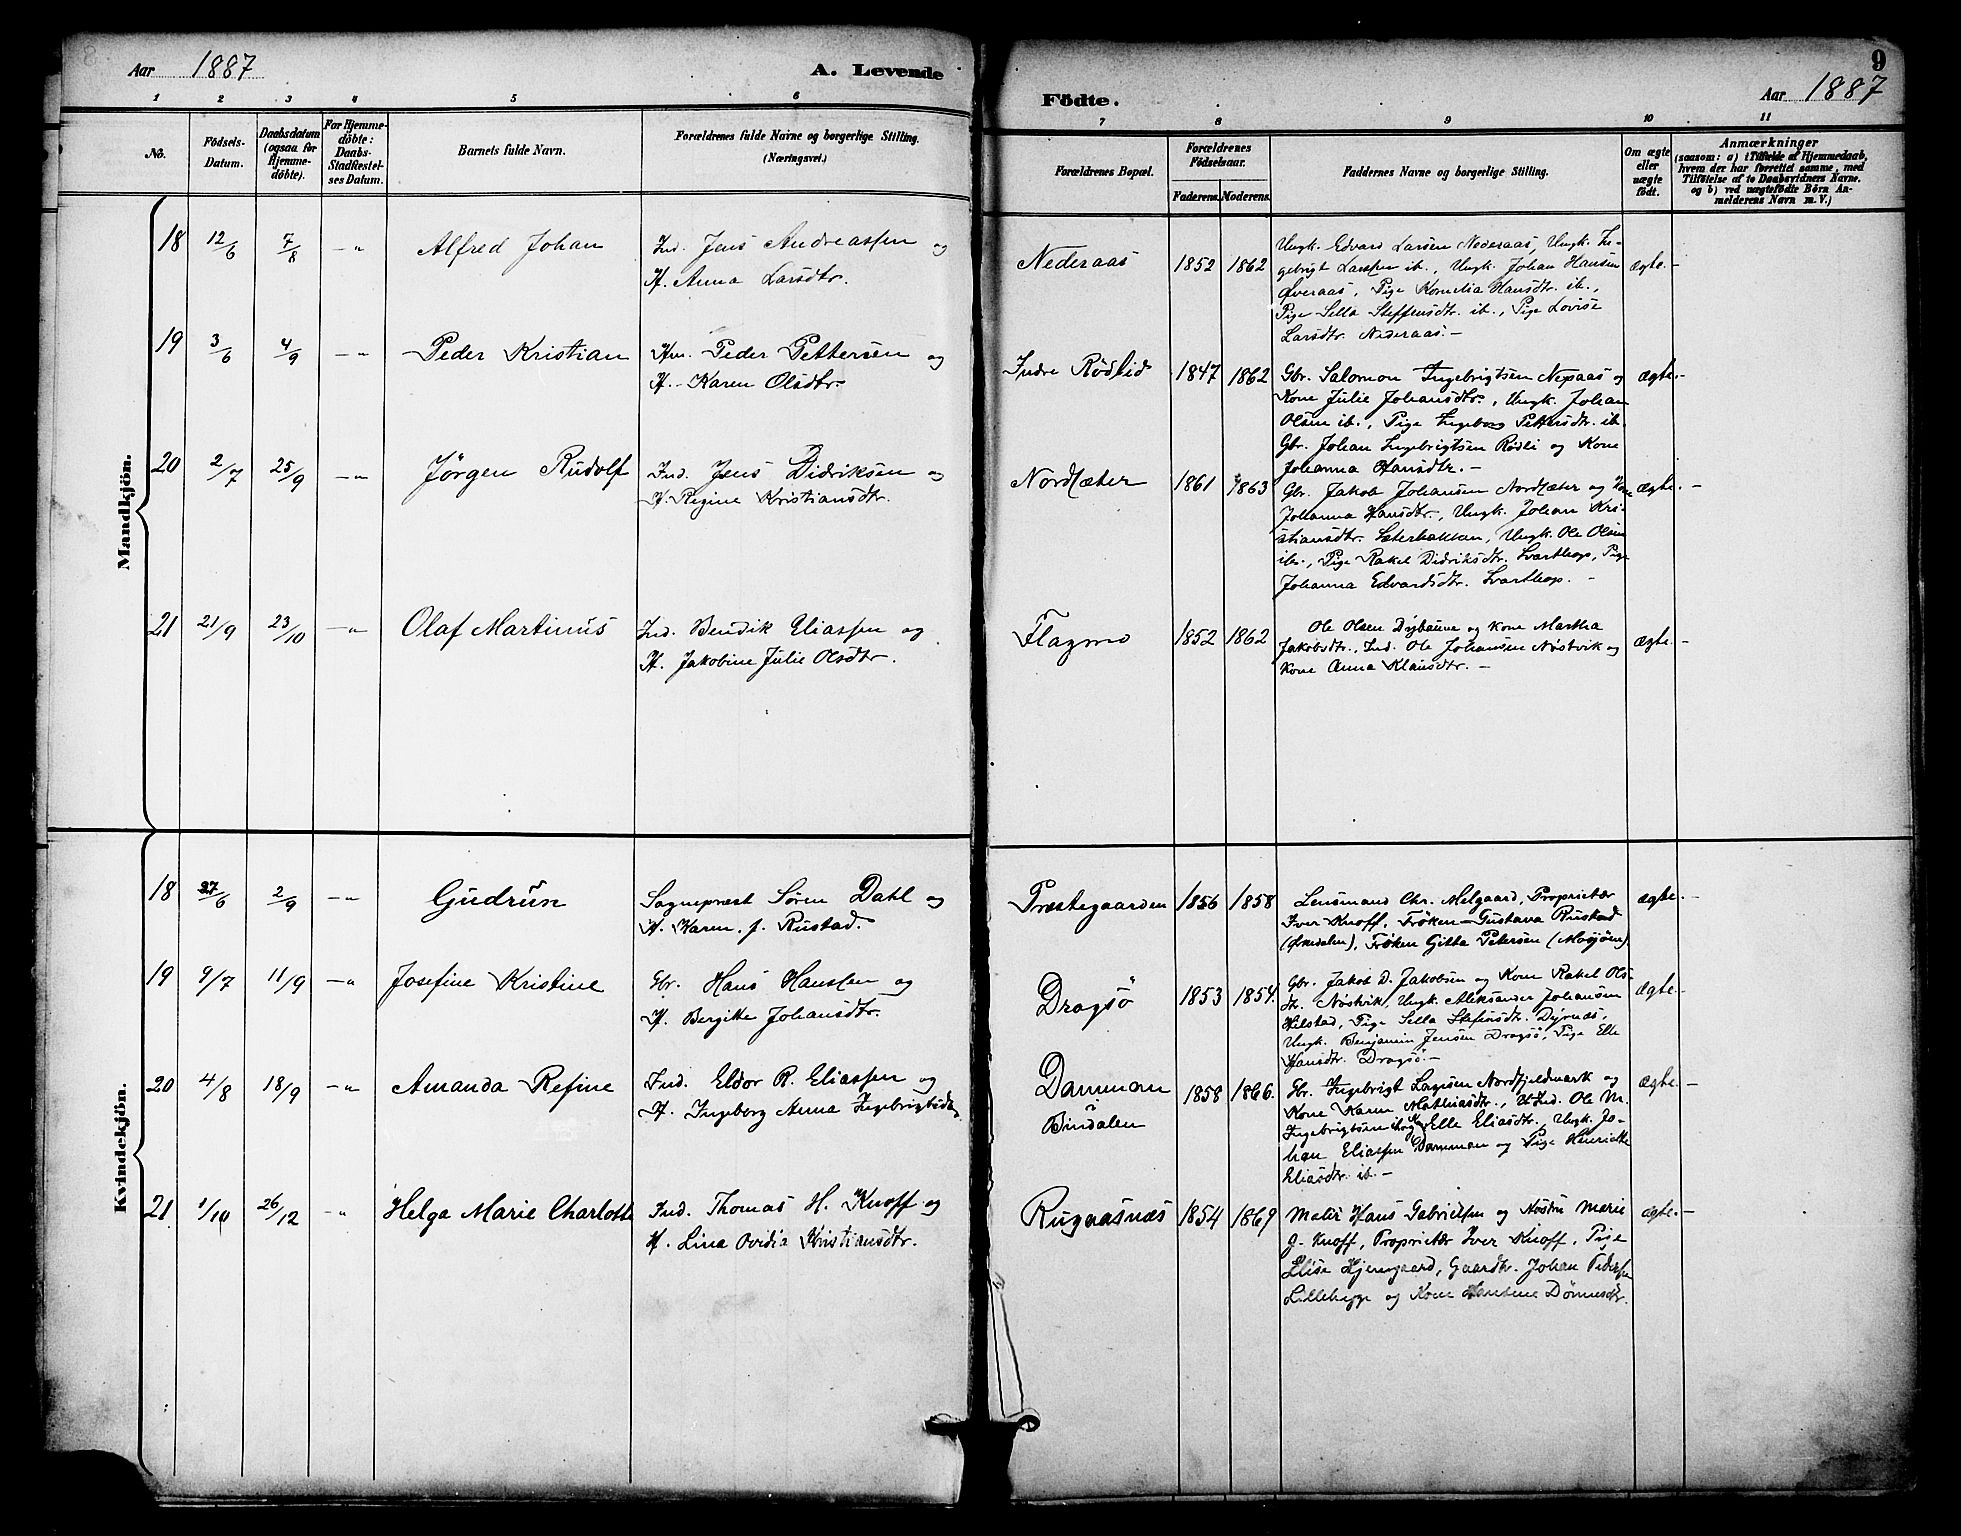 8
Aar 1887
A. Levende
1 2 3 4 5 6
No.
Födsels-
Datum.
Daabsdatum
(ogsaa for
Hjemme-
döbte).
For Hjemme-
döbte:
Daabs-
Stadfæstel-
ses Datum.
Barnets fulde Navn.
Forældrenes fulde Navne og borgerlige Stilling.
(Næringsvei.)
Mandkjön.
18 12/6 7/8 — " Alfred Johan
Ind. Jens Andreassen og
H. Anna Larsdtr.
19 3/6 4/9 — " Peder Kristian
Hm. Peder Pettersen og
H. Karen Olsdtr.
20 2/7 25/9 — " Jörgen Rudolf
Ind. Jens Didriksen og
H. Regine Kristiansdtr.
21 21/9 23/10 — " Olaf Martinus
Ind. Bendik Eliassen og
H. Jakobine Julie Olsdtr.
Kvindekjön.
18 27/6 2/9 — " Gudrun
Sognepræst Sören Dahl og
H. Karen f. Rustad.
19 9/7 11/9 — " Josefine Kristine
Gbr. Hans Hanssen og
H. Bergitte Johansdtr.
20 4/8 18/9 — " Amanda Refine
Ind. Eldor R. Eliassen og
H. Ingeborg Anna Ingebrigtsdtr.
21 1/10 26/12 — " Helga Marie Charlotte
Ind. Thomas H. Knoff og
H. Lina Ovidia Kristiansdtr.
9
Födte.
Aar 1887
7 8 9 10 11
Forældrenes Bopæl.
Forældrenes
Födselsaar.
Faderens. Moderens.
Faddernes Navne og borgerlige Stilling.
Om ægte
eller
uægte
födt.
Anmærkninger
(saasom: a) i Tilfælde af Hjemmedaab,
hvem der har forrettet samme, med
Tilföielse af to Daabsvidners Navne.
og b) ved uægtefödte Börn An-
melderens Navn m. V.)
Nederaas 1852 1862
Ungk. Edvard Larsen Nederaas, Ungk. In-
gebrigt Larssen ib., Ungk. Johan Hansen
Överaas, Pige Kornelia Hansdtr. ib.,
Pige Sella Steffensdtr. ib., Pige Lovise
Larsdtr. Nederaas. —
ægte. —
Indre Rödlid 1847 1862
Gbr. Salomon Ingebrigtsen Nepaas og
Kone Julie Johansdtr., Ungk. Johan
Olsen ib., Pige Ingeborg Pettersdtr. ib.
Gbr. Johan Ingebrigtsen Rödli og Kone
Johanna Hansdtr. —
ægte. —
Nordsæter 1861 1863
Gbr. Jakob Johansen Nordsæter og Kone
Johanna Hansdtr., Ungk. Johan Kri-
stiansdtr. Sæterbakken, Ungk. Ole Olsen
ib., Pige Rakel Didriksdtr. Svarthop, Pige
Johanna Edvardsdtr. Svarthop. —
ægte. —
Flagmo 1852 1862
Ole Olsen Dybaune og Kone Martha
Jakobsdtr., Ind. Ole Johansen Nöstvik og
Kone Anna Klausdtr. —
ægte. —
Præstegaarden 1856 1858
Lensmand Chr. Melgaard, Proprietær
Iver Knoff, Fröken Gustava Rustad
(Örkedalen), Fröken Gitta Petersen (Mosjöen)
ægte. —
Dragsö 1853 1854.
Gbr. Jakob D. Jakobsen og Kone Rakel Ols-
dtr. Nöstvik, Ungk. Aleksander Johansen
Hilstad, Pige Sella Stefensdtr. Dyrnes,
Ungk. Benjamin Jensen Dragsö, Pige Elle
Hansdtr. Dragsö. —
ægte. —
Damman
Bindalen
1858 1866.
Gbr. Ingebrigt Larsen Nordfjeldmark og
Kone Karen Mathiasdtr., Ind. Ole M.
Ingebrigtsen ib og Elle Eliasdtr., Ungk. Jo-
han Eliassen Damman og Pige Henriette
Eliasdtr. ib. —
ægte. —
Rugaasnæs 1854 1869
Maler Hans Gabrielsen og Söstru Marie
G. Knoff, Proprietær Iver Knoff, Pige
Elise Hjemgaard, Gaardbr. Johan Pedersen
Lillehegge og Kone Hansine Dönnesdtr.
ægte. —